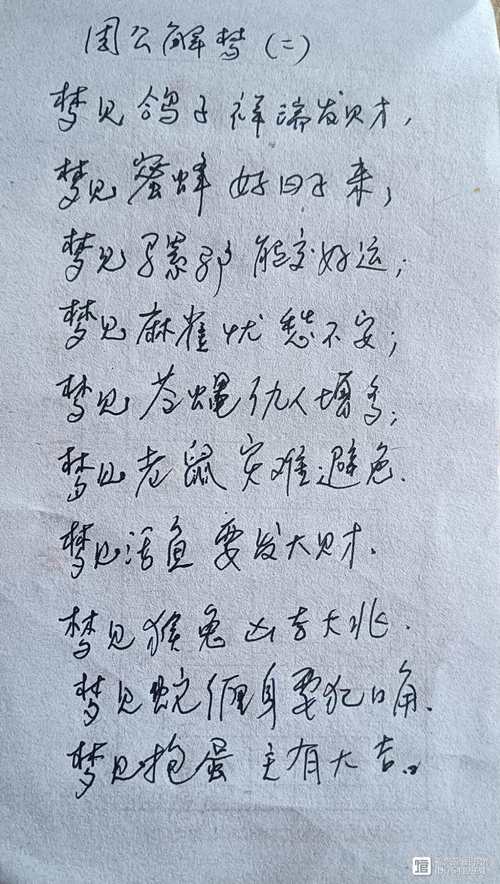 周公解梦(二)
梦见鸽子祥瑞发财，
梦见蜜蜂好日子来；
梦见骡驴能交好运；
梦见麻雀忧愁不安；
梦见苍蝇仇人增多；
梦见老鼠灾难避免.
梦见活鱼要发大财.
梦见猴兔凶去大兆.
梦见蛇缠身要犯口角.
梦见抱蛋主有大吉。